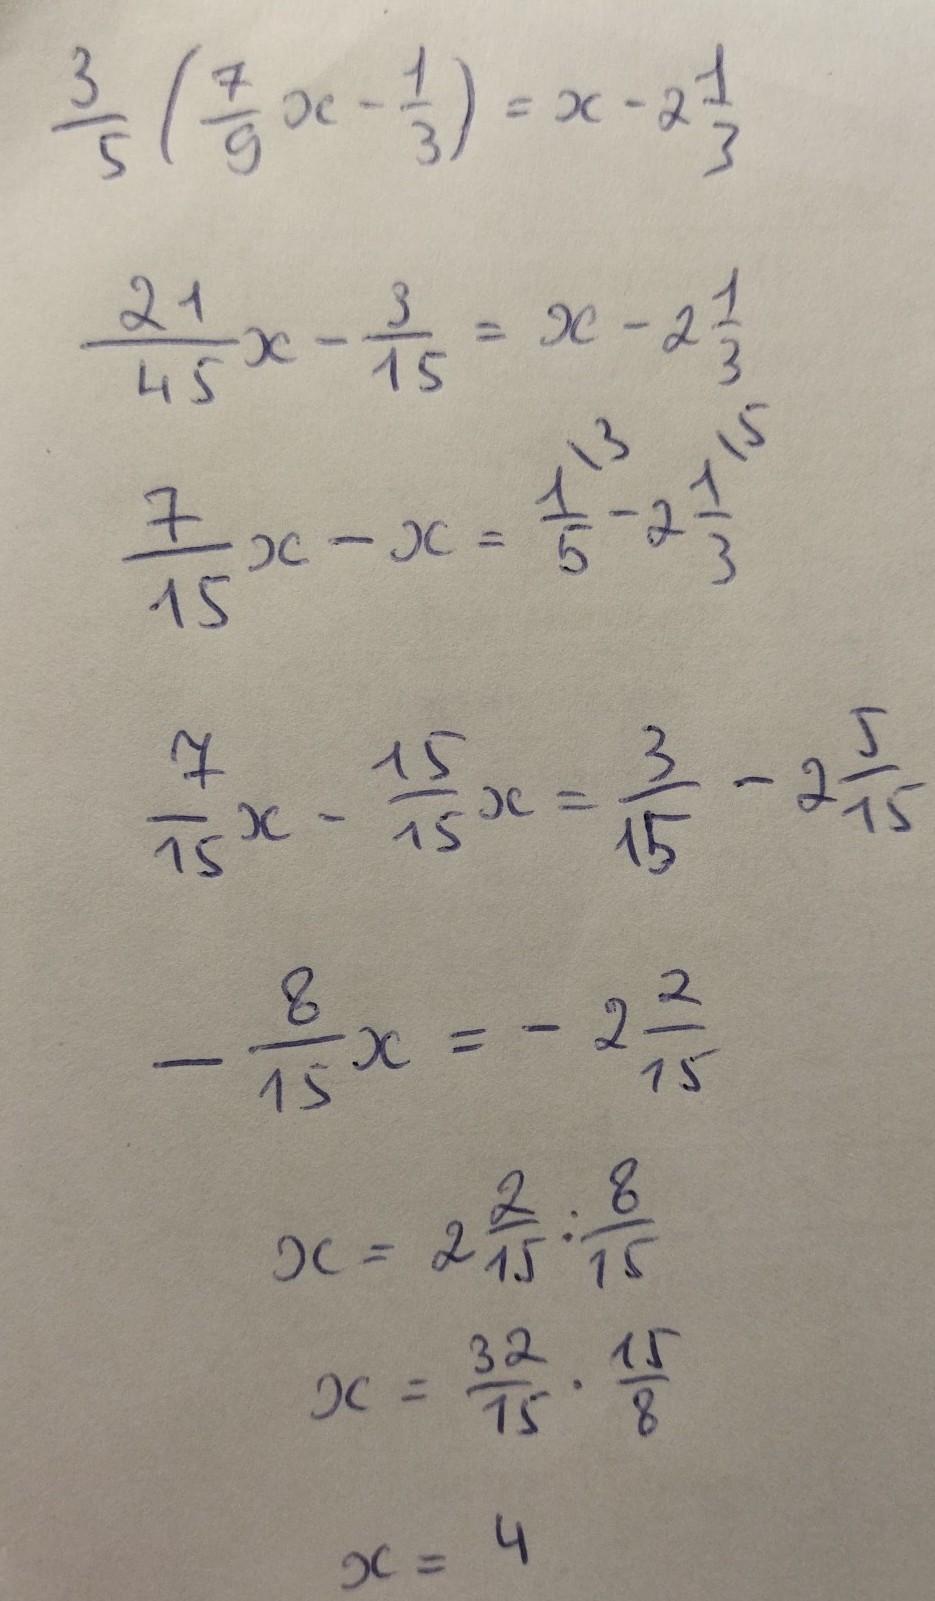 3/5 (7/9 x - 1/3) = x - 2 1/3
21/45 x - 3/15 = x - 2 1/3
7/15 x - x = 1/5 \3 - 2 1/3 \5
7/15 x - 15/15 x = 3/15 - 2 5/15
- 8/15 x = - 2 2/15
x = 2 2/15 : 8/15
x = 32/15 · 15/8
x = 4